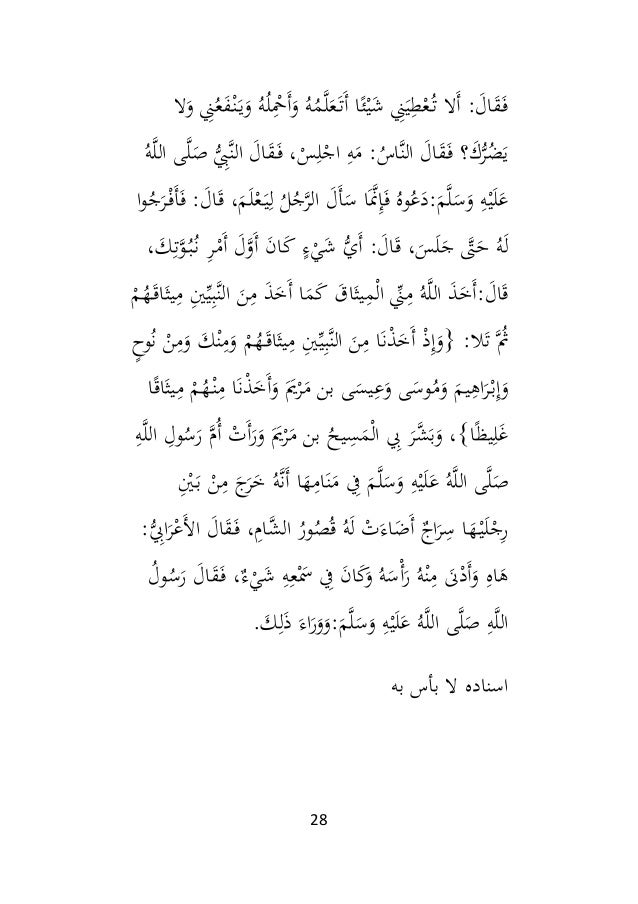 فَقَالَ: أَلا تُعْطِيَنِي شَيْئًا أَتَعَلَّمُهُ وَأَحْمِلُهُ وَيَنْفَعُنِي وَلا
يَضُرُّكَ؟ فَقَالَ النَّاسُ: مَهِ اجْلِسْ، فَقَالَ النَّبِيُّ صَلَّى اللَّهُ
عَلَيْهِ وَسَلَّمَ:دَعُوهُ فَإِنَّمَا سَأَلَ الرَّجُلُ لِيَعْلَمَ، قَالَ: فَأَفْرَجُوا
لَهُ حَتَّى جَلَسَ، قَالَ: أَيُّ شَيْءٍ كَانَ أَوَّلَ أَمْرِ نُبُوَّتِكَ،
قَالَ:أَخَذَ اللَّهُ مِنِّي الْمِيثَاقَ كَمَا أَخَذَ مِنَ النَّبِيِّينِ مِيثَاقَهُمْ
ثُمَّ تَلا: {وَإِذْ أَخَذْنَا مِنَ النَّبِيِّينِ مِيثَاقَهُمْ وَمِنْكَ وَمِنْ نُوحٍ
وَإِبْرَاهِيمَ وَمُوسَى وَعِيسَى بن مَرْيَمَ وَأَخَذْنَا مِنْهُمْ مِيثَاقًا
غَلِيظًا}، وَبَشَّرَ بِي الْمَسِيحُ بن مَرْيَمَ وَرَأَتْ أُمُّ رَسُولِ اللَّهِ
صَلَّى اللَّهُ عَلَيْهِ وَسَلَّمَ فِي مَنَامِهَا أَنَّهُ خَرَجَ مِنْ بَيْنِ
رِجْلَيْهَا سِرَاجٌ أَضَاءَتْ لَهُ قُصُورُ الشَّامِ، فَقَالَ الأَعْرَابِيُّ:
هَاهِ وَأَدْنَى مِنْهُ رَأْسَهُ وَكَانَ فِي سَمْعِهِ شَيْءٌ، فَقَالَ رَسُولُ
اللَّهِ صَلَّى اللَّهُ عَلَيْهِ وَسَلَّمَ:وَوَرَاءَ ذَلِكَ.
اسناده لا بأس به
28